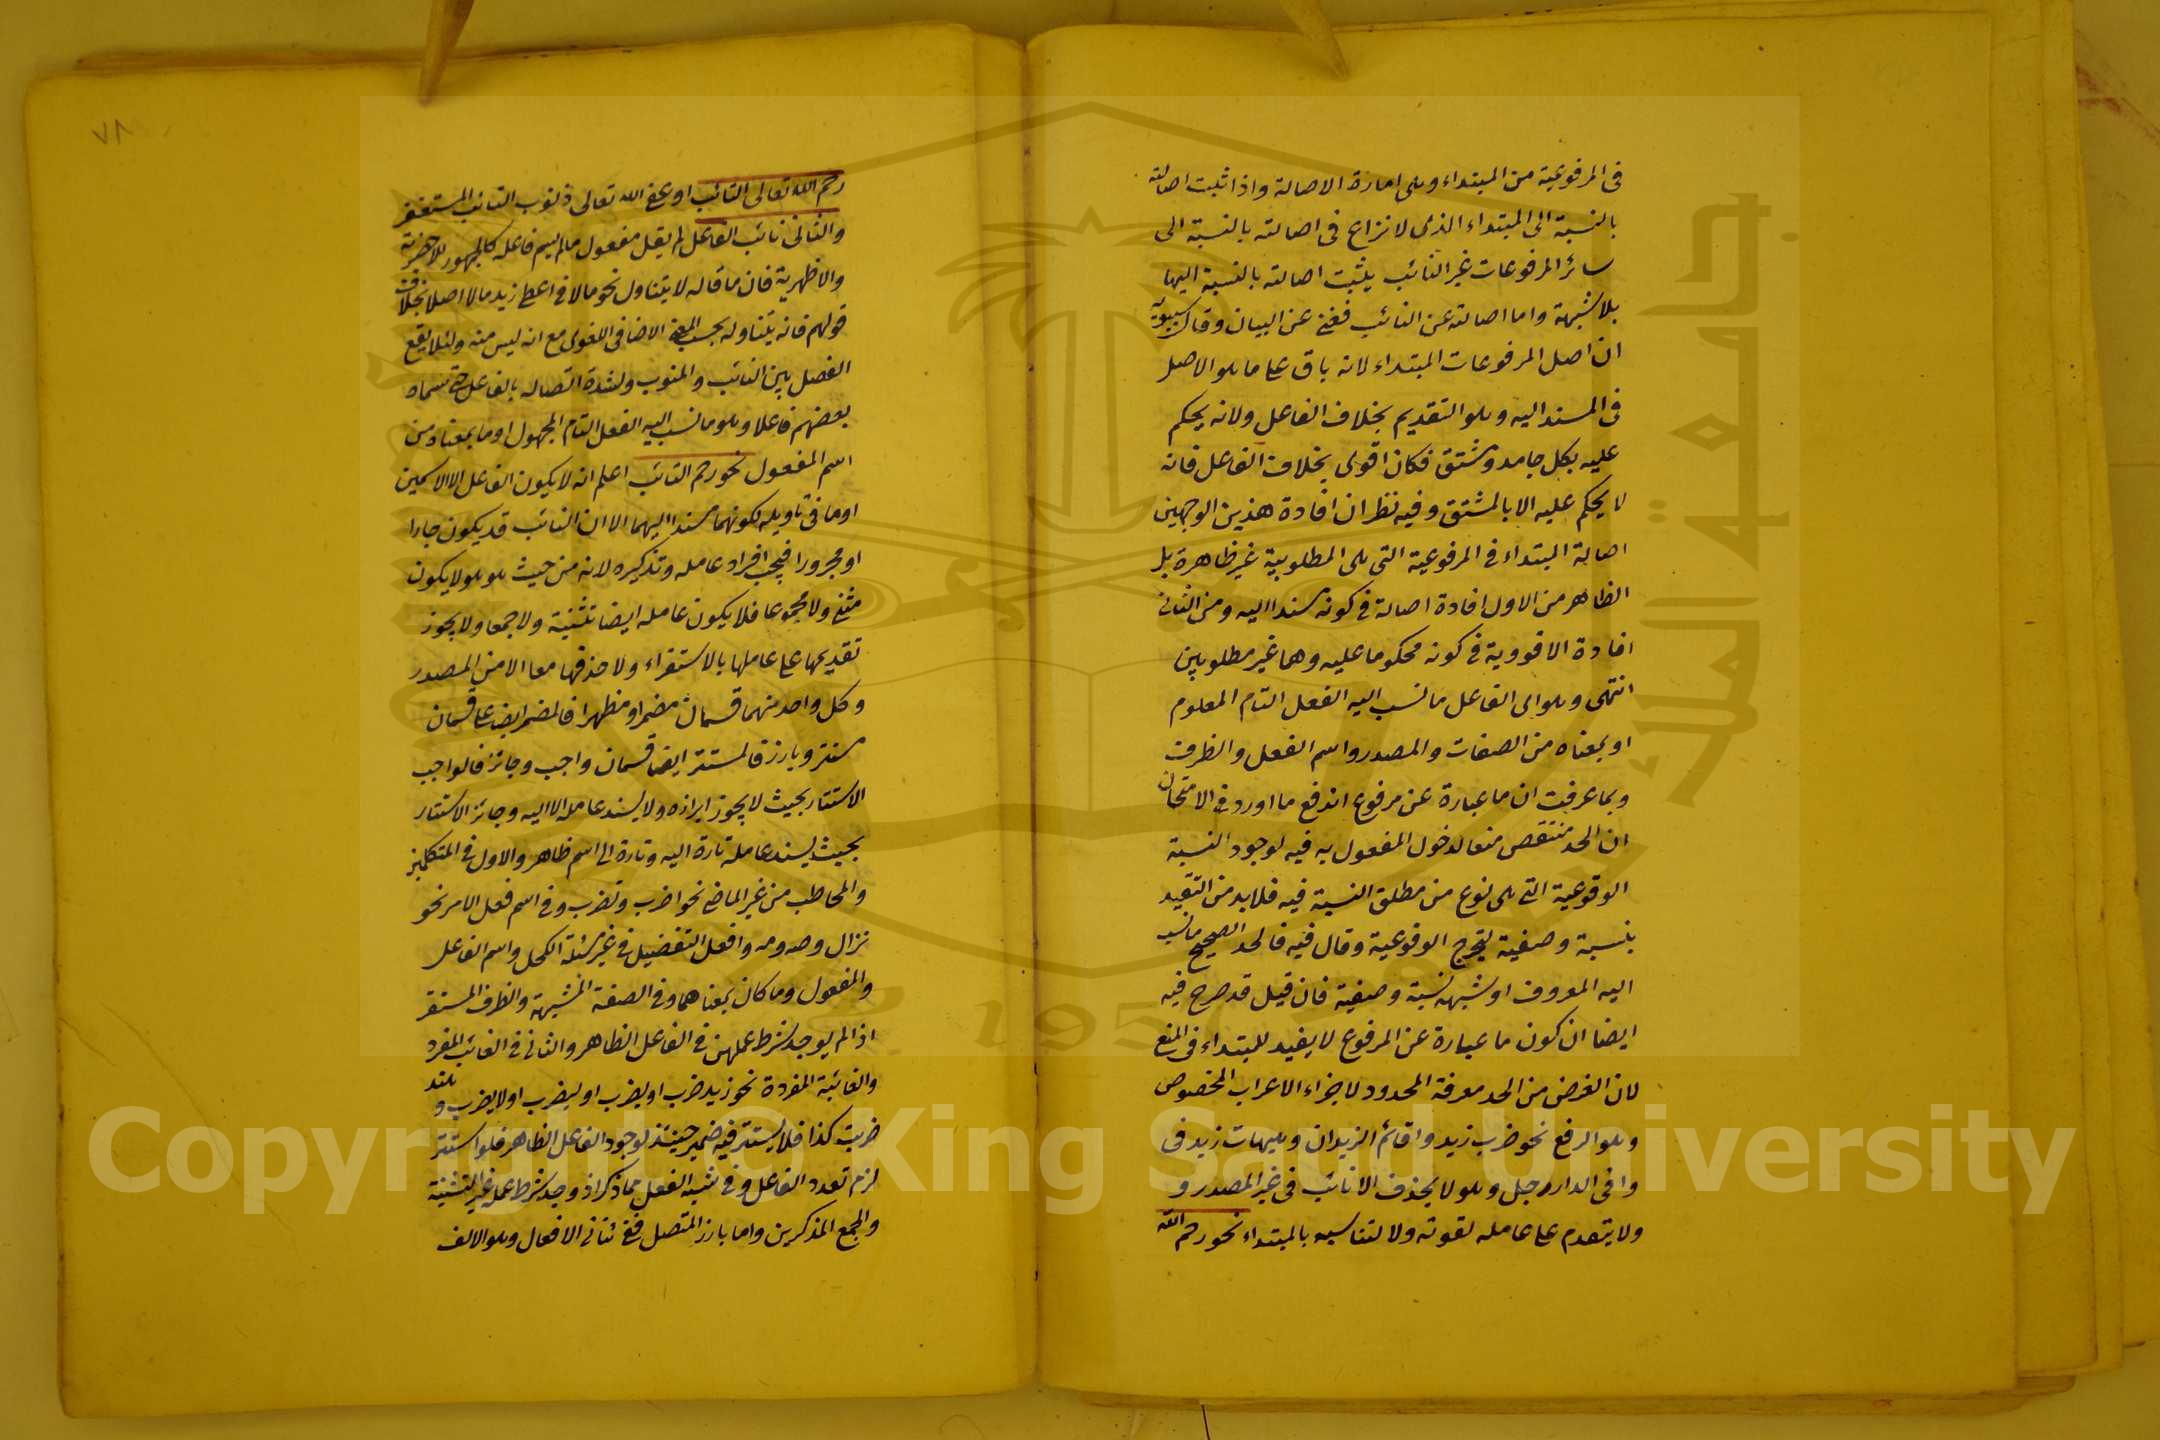 في المرفوعية من المبتداء وهى امارة الاصالة واذا ثبت اصالته
بالنسبة الى المبتداء الذى لا نزاع فى اصالته بالنسبة الى
سائر المرفوعات غير النائب يثبت اصالته بالنسبة اليها
بلا شبهة واما اصالته عن النائب فغني عن البيان وقال سيبويه
ان اصل المرفوعات المبتداء لانه باق على ما هو الاصل
فى المسند اليه وهو التقديم بخلاف الفاعل ولانه يحكم
عليه بكل جامد ومشتق فكان اقوى بخلاف الفاعل فانه
لا يحكم عليه الا بالمشتق وفيه نظر ان افادة هذين الوجهين
اصالة المبتداء فى المرفوعية التى هى المطلوبية غير ظاهرة بل
الظاهر من الاول افادة اصالة فى كونه مسندا اليه ومن الثانى
افادة الاقووية فى كونه محكوما عليه وهما غير مطلوبين
انتهى وهو اى الفاعل ما نسب اليه الفعل التام المعلوم
او بمعناه من الصفات والمصدر واسم الفعل والظرف
وبما عرفت ان ما عبارة عن مرفوع اندفع ما اورد فى الامتحان
ان الحد منتقص منعا لدخول المفعول به فيه لوجود النسبة
الوقوعية التى هى نوع من مطلق النسبة فيه فلا بد من التقييد
بنسبة وصفية ليخرج الوقوعية وقال فيه فالحد الصحيح ما نسب
اليه المعروف او شبهه نسبة وصفية فان قيل قد صرح فيه
ايضا ان كون ما عبارة عن المرفوع لا يفيد للمبتداء فى المنع
لان الغرض من الحد معرفة المحدود لاجراء الاعراب المخصوص
وهو الرفع نحو ضرب زيد واقائم الزيدان وهيهات زيد فى
وافى الدار رجل وهو لا يحذف الا نائب فى غير المصدر و
ولا يتقدم على عامله لقوته ولا لتناسبه بالمبتداء نحو رحم الله
٧٨
رحم الله تعالى التائب او يمحى الله تعالى ذنوب التائب المستغفر
والثانى نائب الفاعل لم يقل مفعول ما لم يسم فاعله كالجمهور للاخصرية
والاظهرية فان ما قاله لا يتناول نحو مالا فى اعطى زيد مالا اصلا بخلاف
قولهم فانه يتناوله بحسب المعنى الاضافى اللغوى مع انه ليس منه ولئلا يقع
الفصل بين النائب والمنوب ولشدة اتصاله بالفاعل حتى سماه
بعضهم فاعلا وهو ما نسب اليه الفعل التام المجهول او ما بمعناه من
اسم المفعول نحو رحم التائب اعلم انه لا يكون الفاعل الا الاسمين
او ما فى تاويله لكونهما مسندا اليهما الا ان النائب قد يكون جارا
او مجرورا فيجب افراد عامله وتذكيره لانه من حيث هو هو لا يكون
مثنى ولا مجموعا فلا يكون عامله ايضا تثنية ولا جمعا ولا يجوز
تقديمها على عاملها بالاستقراء ولا حذفها معا الا من المصدر
وكل واحد منهما قسمان مضمر او مظهر فالمضمر ايضا على قسمان
مستتر وبارز فالمستتر ايضا قسمان واجب وجائز فالواجب
الاستتار بحيث لا يجوز ابرازه ولا يسند عامله الا اليه وجائز الاستتار
بحيث يسند عامله تارة اليه وتارة الى اسم ظاهر والاول فى المتكلمين
والمخاطب من غير الماضى نحو اضرب وتضرب وفى اسم فعل الامر نحو
نزال وصه ومه وافعل التفضيل فى غير مسئلة الكحل واسم الفاعل
والمفعول وما كان بمعناهما وفى الصفة المشبهة والظرف المستقر
اذا لم يوجد شرط عملهن فى الفاعل الظاهر والثانى فى الغائب المفرد
والغائبة المفردة نحو زيد ضرب او يضرب او ليضرب او لا يضرب وهند
ضربت كذا فلا يستتر فيه ضمير حينئذ لوجود الفاعل الظاهر فلو استتر
لزم تعدد الفاعل وفى شبه الفعل مما ذكر اذا وجد شرط عمله غير التثنية
والجمع المذكرين واما بارز المتصل ففى ثنائى الافعال وهو الالف
جامعة الملك سعود
1957
Copyright © King Saud University